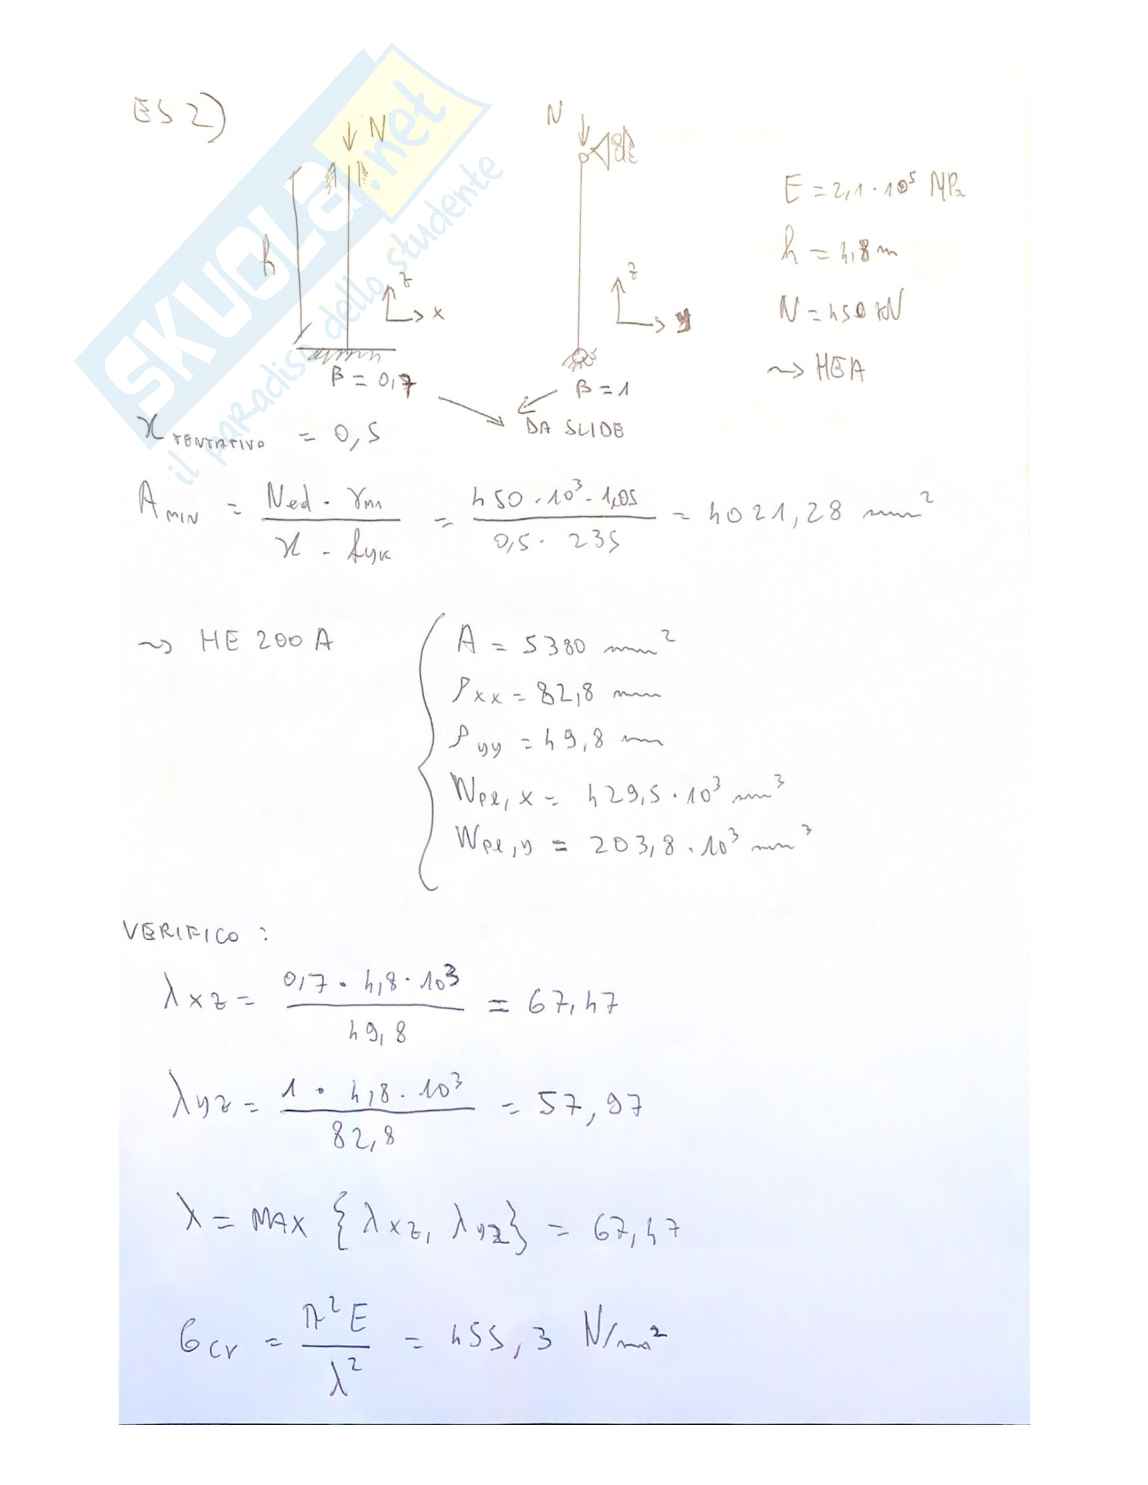 ES 2)
N
N
E = 2,1 · 10⁵ MPa
h = 4,8 m
N = 450 kN
~> HEA
h
z
x
z
y
β = 0,7
β = 1
DA SLIDE
χ TENTATIVO = 0,5
A MIN = Ned · γm1 / χ · fyk = 450 · 10³ · 1,05 / 0,5 · 235 = 4021,28 mm²
~> HE 200 A
A = 5380 mm²
ρxx = 82,8 mm
ρyy = 49,8 mm
Wpl,x = 429,5 · 10³ mm³
Wpl,y = 203,8 · 10³ mm³
VERIFICO :
λxz = 0,7 · 4,8 · 10³ / 49,8 = 67,47
λyz = 1 · 4,8 · 10³ / 82,8 = 57,97
λ = MAX { λxz, λyz } = 67,47
σcr = π² E / λ² = 455,3 N/mm²
SKUOLA.net
il paradiso dello studente